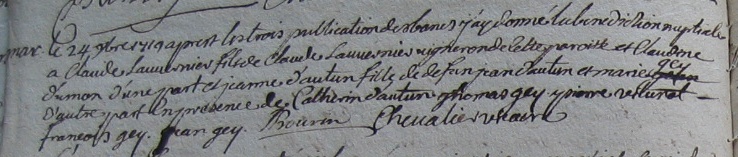 mar. le 24 9bre 1719 apres les trois publication des bancs j'ay donné la benediction nuptiale
a Claude Lauvernier fils de Claude Lauvernier vigneron de cette paroisse et Claudine
dumon d'une part et jeanne d'autun fille de defun jean d'autun et marie gey
d'autre part en presence de Catherin d'autun thomas gey pierre
françois gey. jean gey. Chevalier vicaire